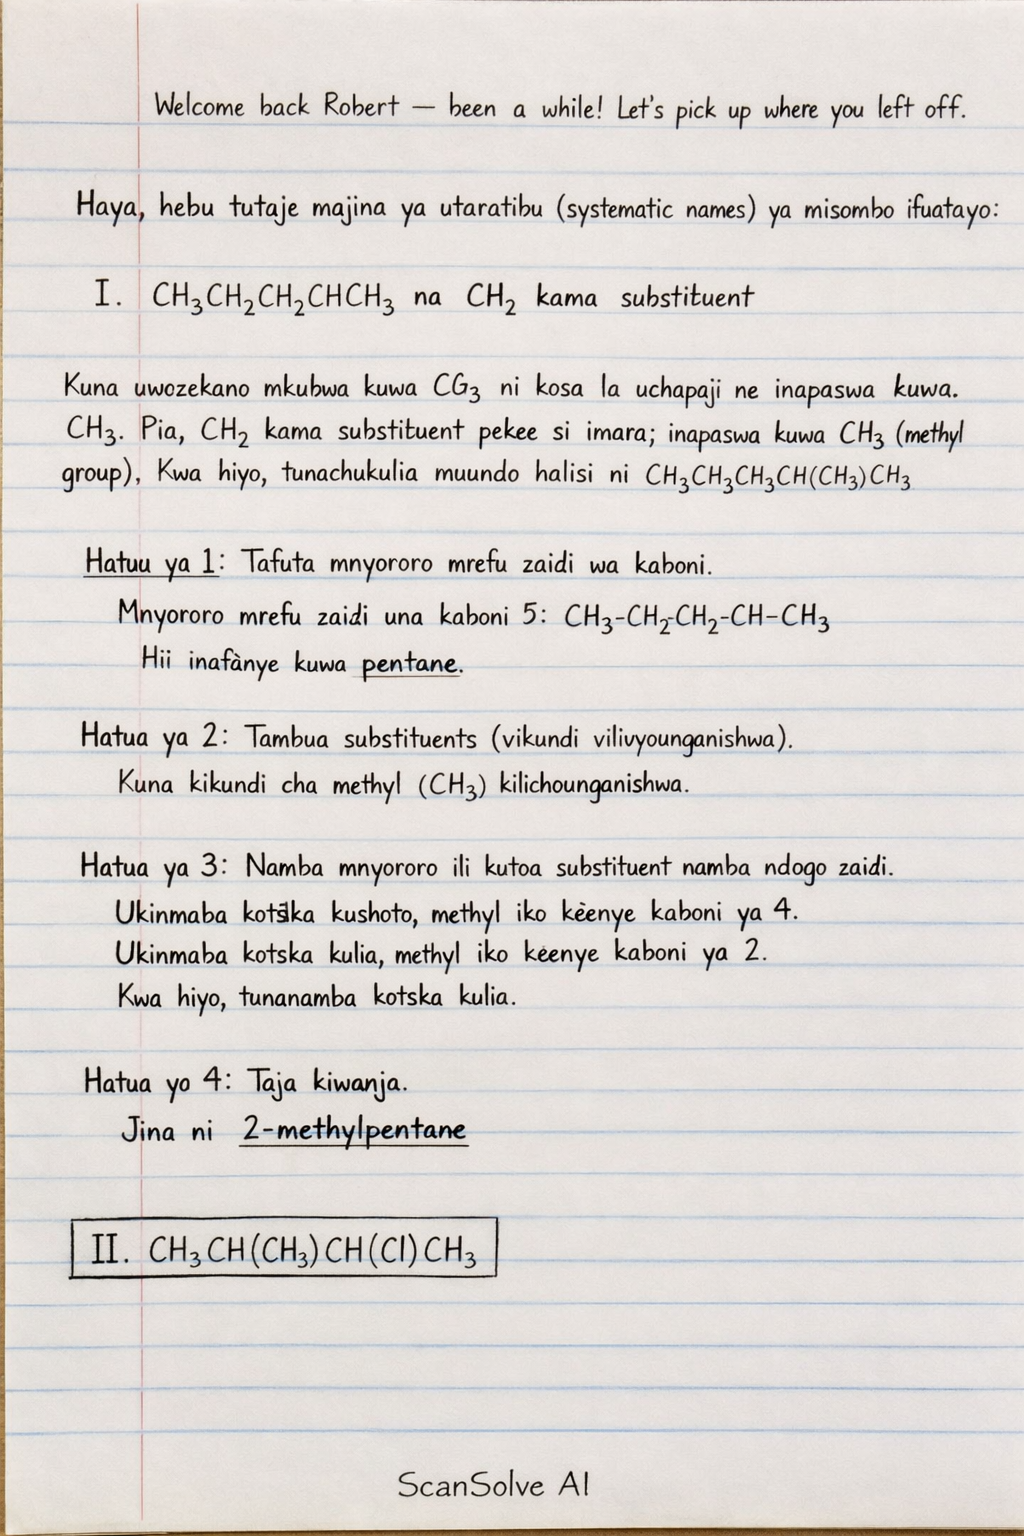 Welcome back Robert — been a while! Let's pick up where you left off.
Haya, hebu tutaje majina ya utaratibu (systematic names) ya misombo ifuatayo:
I. CH₃CH₂CH₂CHCH₃ na CH₂ kama substituent
Kuna uwozekano mkubwa kuwa CG₃ ni kosa la uchapaji ne inapaswa kuwa.
CH₃. Pia, CH₂ kama substituent pekee si imara; inapaswa kuwa CH₃ (methyl
group), Kwa hiyo, tunachukulia muundo halisi ni CH₃CH₃CH₃CH(CH₃)CH₃
Hatuu ya 1: Tafuta mnyororo mrefu zaidi wa kaboni.
Mnyororo mrefu zaidi una kaboni 5: CH₃-CH₂-CH₂-CH-CH₃
Hii inafànye kuwa pentane.
Hatua ya 2: Tambua substituents (vikundi vilivyounganishwa).
Kuna kikundi cha methyl (CH₃) kilichounganishwa.
Hatua ya 3: Namba mnyororo ili kutoa substituent namba ndogo zaidi.
Ukinmaba kushoto, methyl iko kèenye kaboni ya 4.
Ukinmaba kotska kulia, methyl iko kéenye kaboni ya 2.
Kwa hiyo, tunanamba kotska kulia.
Hatua yo 4: Taja kiwanja.
Jina ni 2-methylpentane
II. CH₃CH(CH₃)CH(Cl)CH₃
ScanSolve AI